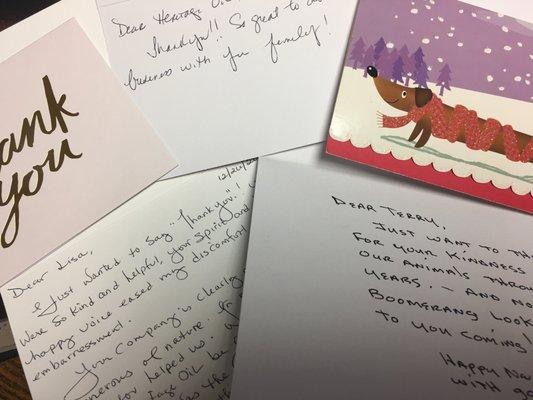 ank
you
Dear Heritage Oil
Thank you!! So great to do
business with you family!
12/20/
Dear Lisa,
I just wanted to say "Thank you"!
were so kind and helpful, your spirit and
happy voice eased my discomfort
embarrassment.
Your Company is clearly
nerous of nature.
helped us.
Oil be
the
Dear Terry,
Just want to th
for your kindness
our animals throu
years. – And no
boomerang look
to you coming!
Happy Ne
with go